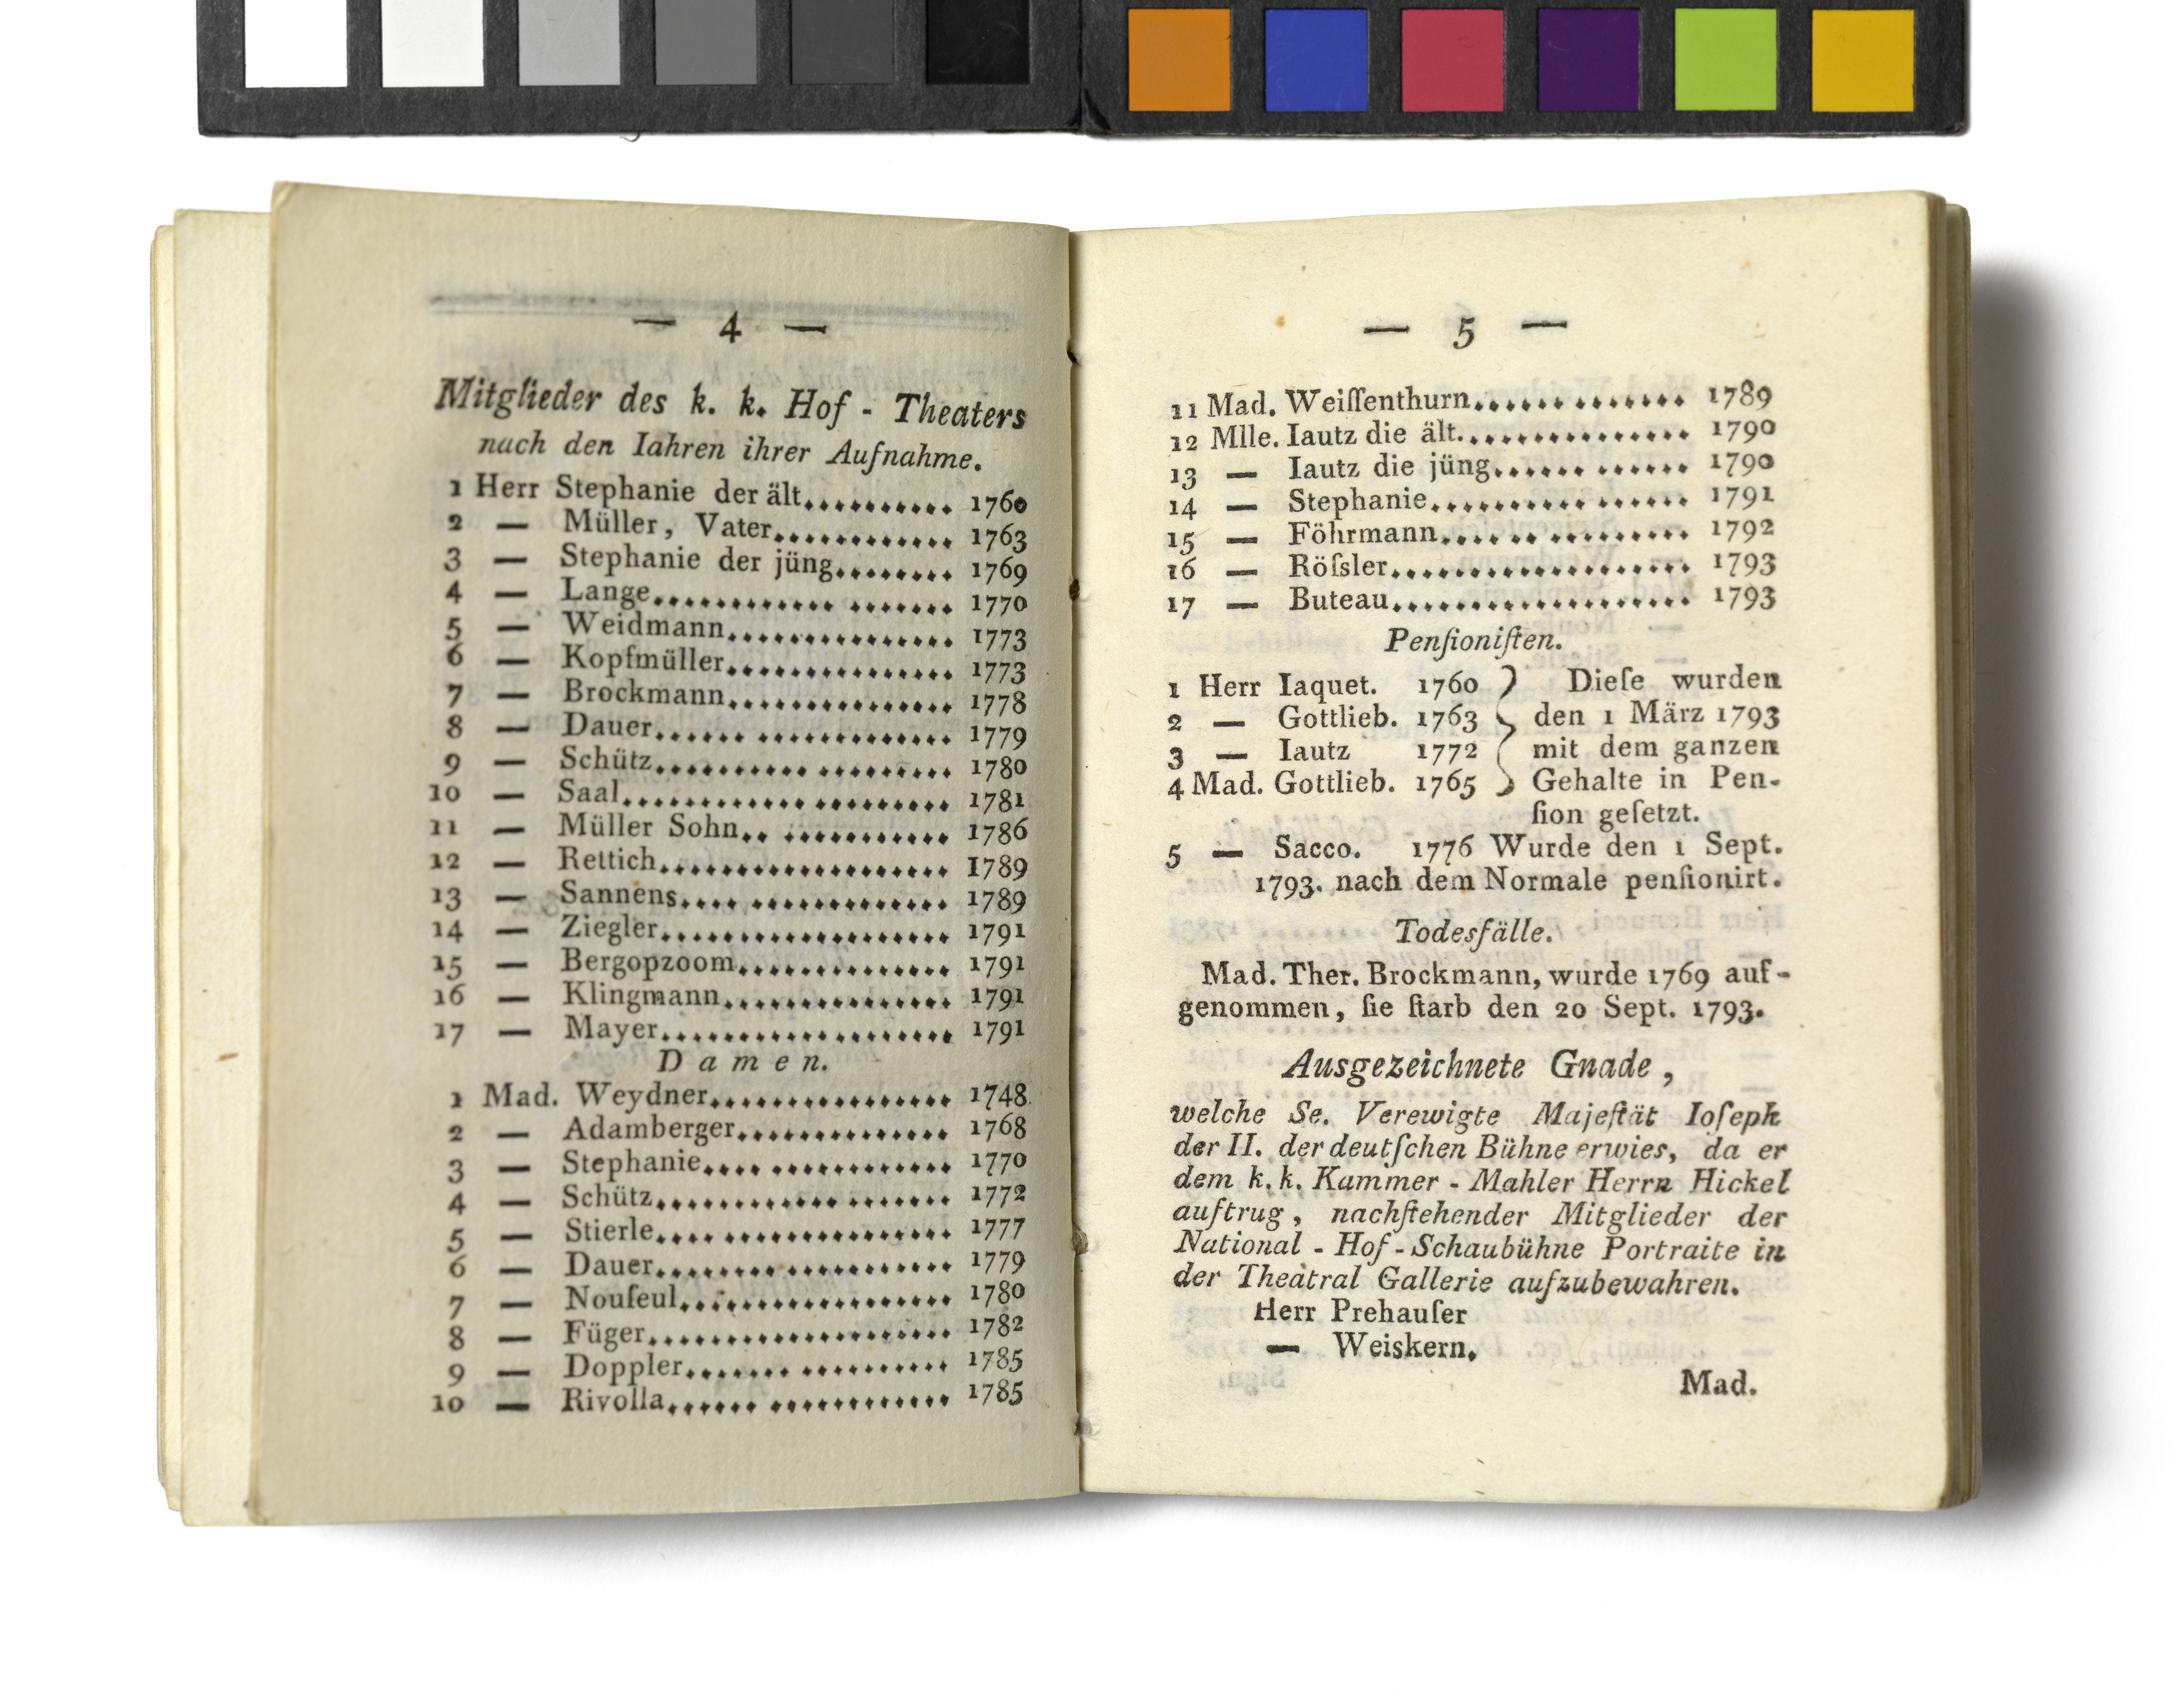 — 4 —
Mitglieder des k. k. Hof - Theaters
nach den Iahren ihrer Aufnahme.
1 Herr Stephanie der ält.......... 1760
2 — Müller, Vater............ 1763
3 — Stephanie der jüng........ 1769
4 — Lange................... 1770
5 — Weidmann............... 1773
6 — Kopfmüller............... 1773
7 — Brockmann............... 1778
8 — Dauer................... 1779
9 — Schütz................... 1780
10 — Saal..................... 1781
11 — Müller Sohn............. 1786
12 — Rettich................... 1789
13 — Sannens................. 1789
14 — Ziegler................... 1791
15 — Bergopzoom.............. 1791
16 — Klingmann............... 1791
17 — Mayer................... 1791
Damen.
1 Mad. Weydner................ 1748
2 — Adamberger.............. 1768
3 — Stephanie................ 1770
4 — Schütz................... 1772
5 — Stierle................... 1777
6 — Dauer................... 1779
7 — Nouſeul.................. 1780
8 — Füger.................... 1782
9 — Doppler................. 1785
10 — Rivolla.................. 1785
— 5 —
11 Mad. Weiſſenthurn............. 1789
12 Mlle. Iautz die ält............... 1790
13 — Iautz die jüng............ 1790
14 — Stephanie................ 1791
15 — Föhrmann............... 1792
16 — Röſsler................... 1793
17 — Buteau................... 1793
Penſioniſten.
1 Herr Iaquet. 1760 } Dieſe wurden
2 — Gottlieb. 1763 den 1 März 1793
3 — Iautz 1772 mit dem ganzen
4 Mad. Gottlieb. 1765 Gehalte in Pen-
ſion geſetzt.
5 — Sacco. 1776 Wurde den 1 Sept.
1793. nach dem Normale penſionirt.
Todesfälle.
Mad. Ther. Brockmann, wurde 1769 auf-
genommen, ſie ſtarb den 20 Sept. 1793.
Ausgezeichnete Gnade,
welche Se. Verewigte Majeſtät Ioſeph
der II. der deutſchen Bühne erwies, da er
dem k. k. Kammer - Mahler Herrn Hickel
auftrug, nachſtehender Mitglieder der
National - Hof - Schaubühne Portraite in
der Theatral Gallerie aufzubewahren.
Herr Prehauſer
— Weiskern.
Mad.